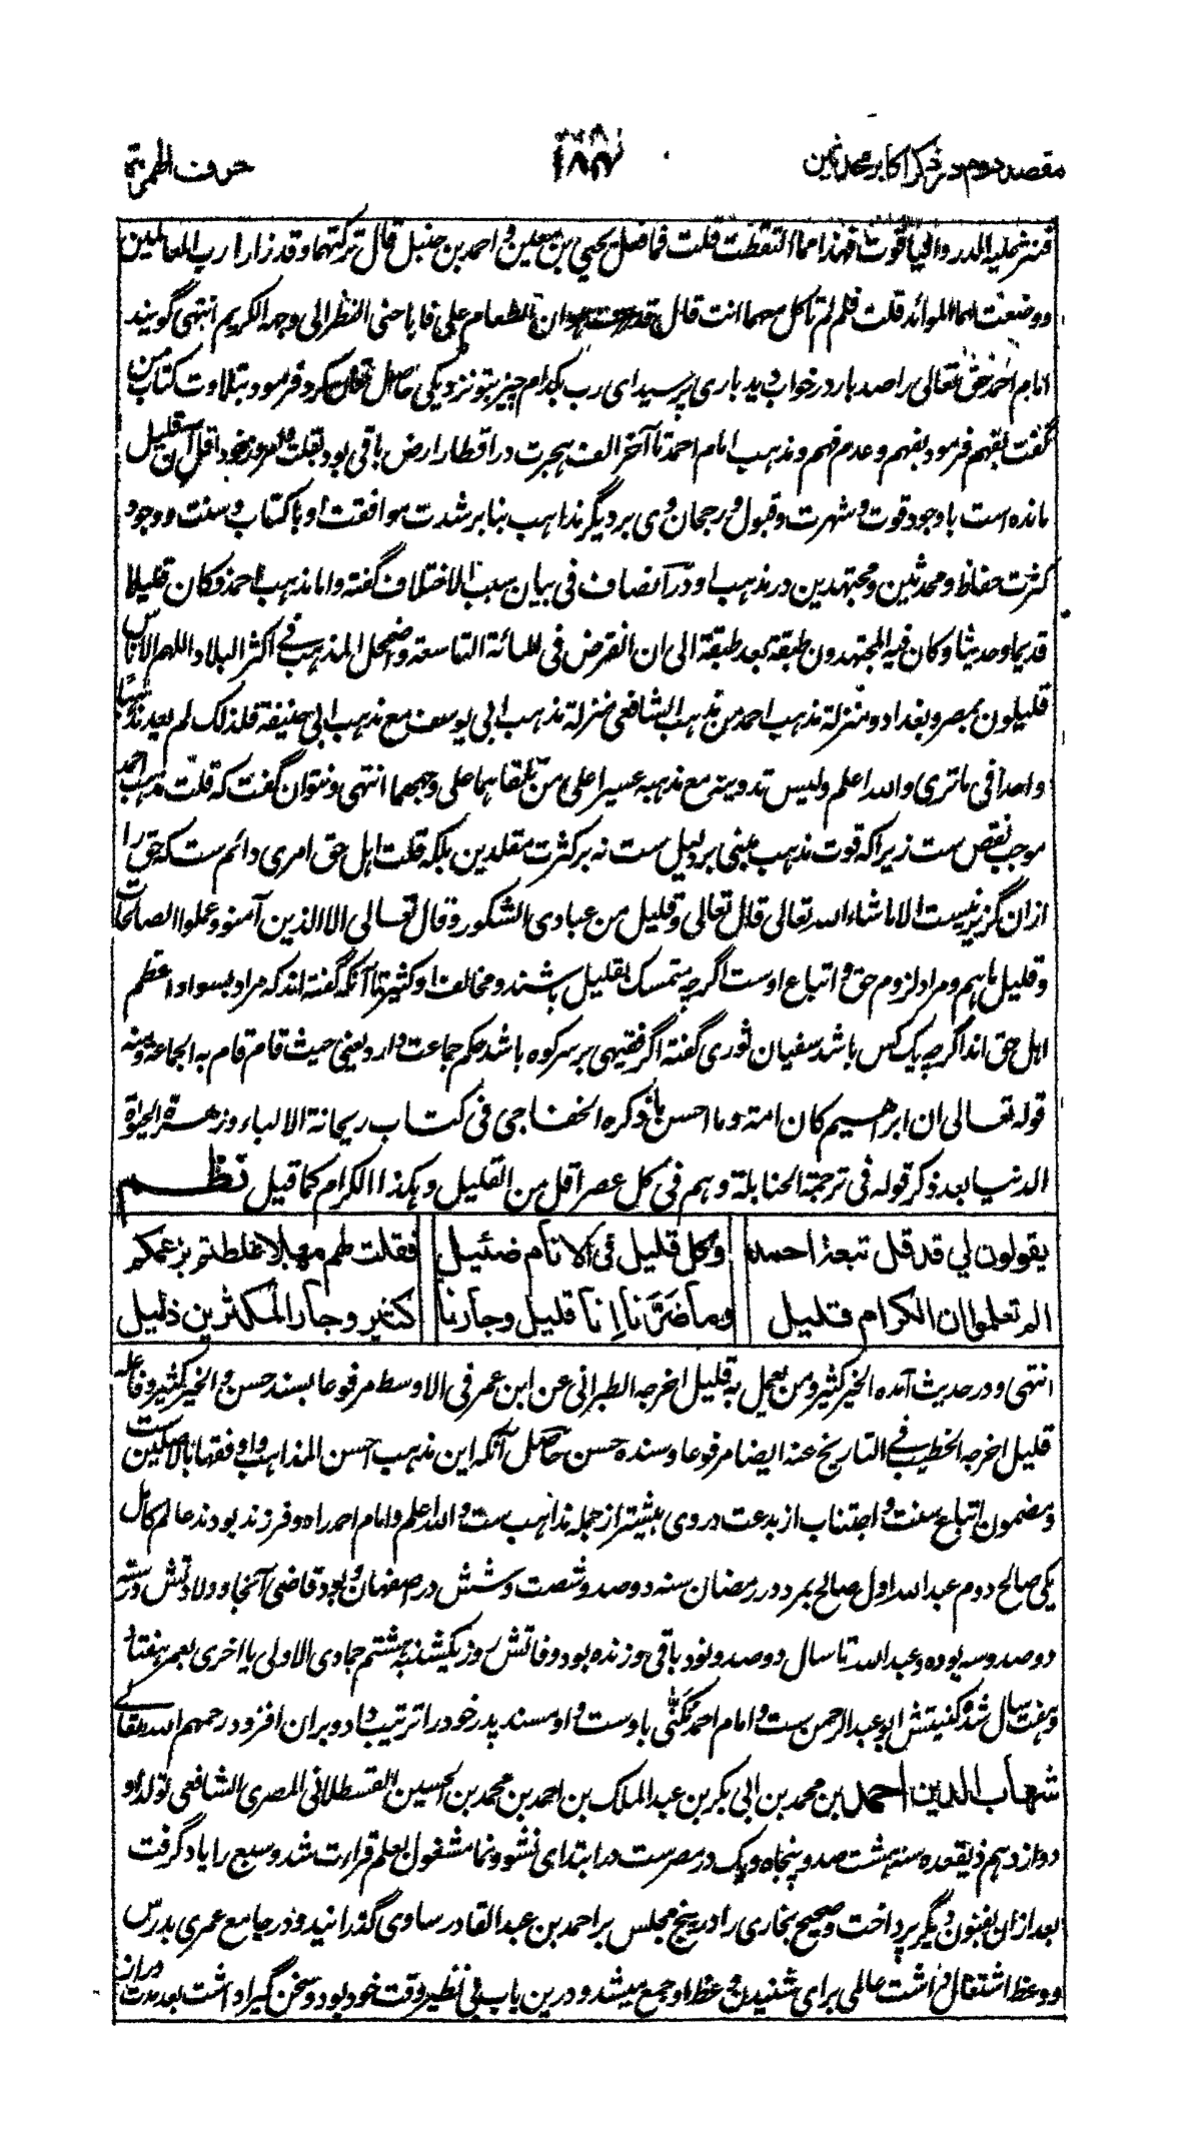 مقصد دوم در ذکر اکابر محدثین
۱۸۷
حرف الهمزة
فنثر علیه الدر والیاقوت فهذا مما التقطت قلت فما فعل یحیی بن معین و احمد بن حنبل قال ترکتهما و قد زارا رب العالمین
و وضعت لهما الموائد قلت فلم لم تأکل معهما انت قال قد عرف هوان الطعام علی فاباحنی النظر الی وجهه الکریم انتهی گویند
امام احمد حق تعالی را صد بار در خواب دید باری پرسید ای رب بکدام چیز بتو نزدیکی حاصل توان کرد فرمود بتلاوت کتاب من
گفت بفهم فرمود بفهم و عدم فهم و مذهب امام احمد تا آخر الف هجرت در اقطار ارض باقی بود بقلت و امروز خود اقل از قلیل
مانده است با وجود قوت و شهرت و قبول و رجحان وی بر دیگر مذاهب بنا بر شدت موافقت او با کتاب و سنت و وجود
کثرت حفاظ و محدثین و مجتهدین در مذهب او در انصاف فی بیان سبب الاختلاف گفته و اما مذهب احمد فکان قلیلا
قدیما و حدیثا و کان فیه المجتهدون طبقة بعد طبقة الی ان انقرض فی المائة التاسعة و اضمحل المذهب فی اکثر البلاد اللهم الا ناس
قلیلون بمصر و بغداد و منزلة مذهب احمد من مذهب الشافعی منزلة مذهب ابی یوسف مع مذهب ابی حنیفة فلذلک لم یعد مذهبا
واحدا فی ما تری والله اعلم و لیس تدوینه مع مذهبه عسیرا علی من تلقاهما علی وجههما انتهی و نتوان گفت که قلت مذهب احمد
موجب نقص ست زیرا که قوت مذهب مبنی بر دلیل ست نه بر کثرت مقلدین بلکه قلت اهل حق امری دائم ست که حق را
ازان گزیر نیست الا ما شاء الله تعالی قال تعالی و قلیل من عبادی الشکور و قال تعالی الا الذین آمنوا و عملوا الصالحات
و قلیل ما هم و مراد لزوم حق و اتباع اوست اگر چه متمسک بقلیل باشند و مخالف او کثیر تا آنکه گفته اند که مراد بسواد اعظم
اهل حق اند اگر چه یک کس باشد سفیان ثوری گفته اگر فقیهی بر سر کوه باشد حکم جماعت دارد یعنی حیث قام قام به الجماعة و منه
قوله تعالی ان ابراهیم کان امة و ما احسن ما ذکره الخفاجی فی کتاب ریحانة الالباء و زهرة الحیوة
الدنیا بعد ذکر قوله فی ترجمة الحنابلة و هم فی کل عصر اقل من القلیل و هکذا الکرام کما قیل نظم
یقولون لی قد قل تبعة احمد وکل قلیل فی الانام ضئیل فقلت لهم مهلا غلطتم بزعمکم
الم تعلموا ان الکرام قلیل وما ضرنا انا قلیل وجارنا کثیر وجار المکثرین ذلیل
انتهی و در حدیث آمده الخیر کثیر و من یعمل به قلیل اخرجه الطبرانی عن ابن عمر فی الاوسط مرفوعا بسند حسن و الخیر کثیر و فاعله
قلیل اخرجه الخطیب فی التاریخ عنه ایضا مرفوعا و سنده حسن حاصل آنکه این مذهب احسن المذاهب و اوفقها بالاصلین ست
و مضمون اتباع سنت و اجتناب از بدعت در وی بیشتر از جمله مذاهب ست والله اعلم و امام احمد را دو فرزند بودند عالم کامل
یکی صالح دوم عبد الله اول صالح بمرد در رمضان سنه دو صد و شصت و شش در اصفهان و بود قاضی آنجا و ولادتش در سنه
دو صد و سه بوده و عبد الله تا سال دو صد و نود باقی و زنده بود وفاتش روز یکشنبه هشتم جمادی الاولی یا اخری بعمر هفتاد
و هفت سال شد و کنیتش ابو عبد الرحمن ست و امام احمد مکنی باوست و او مسند پدر خود را ترتیب داد و بران افزود رحمهم الله تعالی
شهاب الدین احمد بن محمد بن ابی بکر بن عبد الملک بن احمد بن محمد بن الحسین القسطلانی المصری الشافعی تولد او
دوازدهم ذیقعده سنه هشت صد و پنجاه و یک در مصرست در ابتدای نشو و نما مشغول بعلم قراءت شد و سبع را یاد گرفت
بعد ازان بفنون دیگر پرداخت و صحیح بخاری را در پنج مجلس بر احمد بن عبد القادر ساوی گذرانید و در جامع عمری بدرس
و وعظ اشتغال داشت عالمی برای شنیدن وعظ او جمع میشد و درین باب بی نظیر وقت خود بود و سخن گیرا داشت بعد مدت دراز